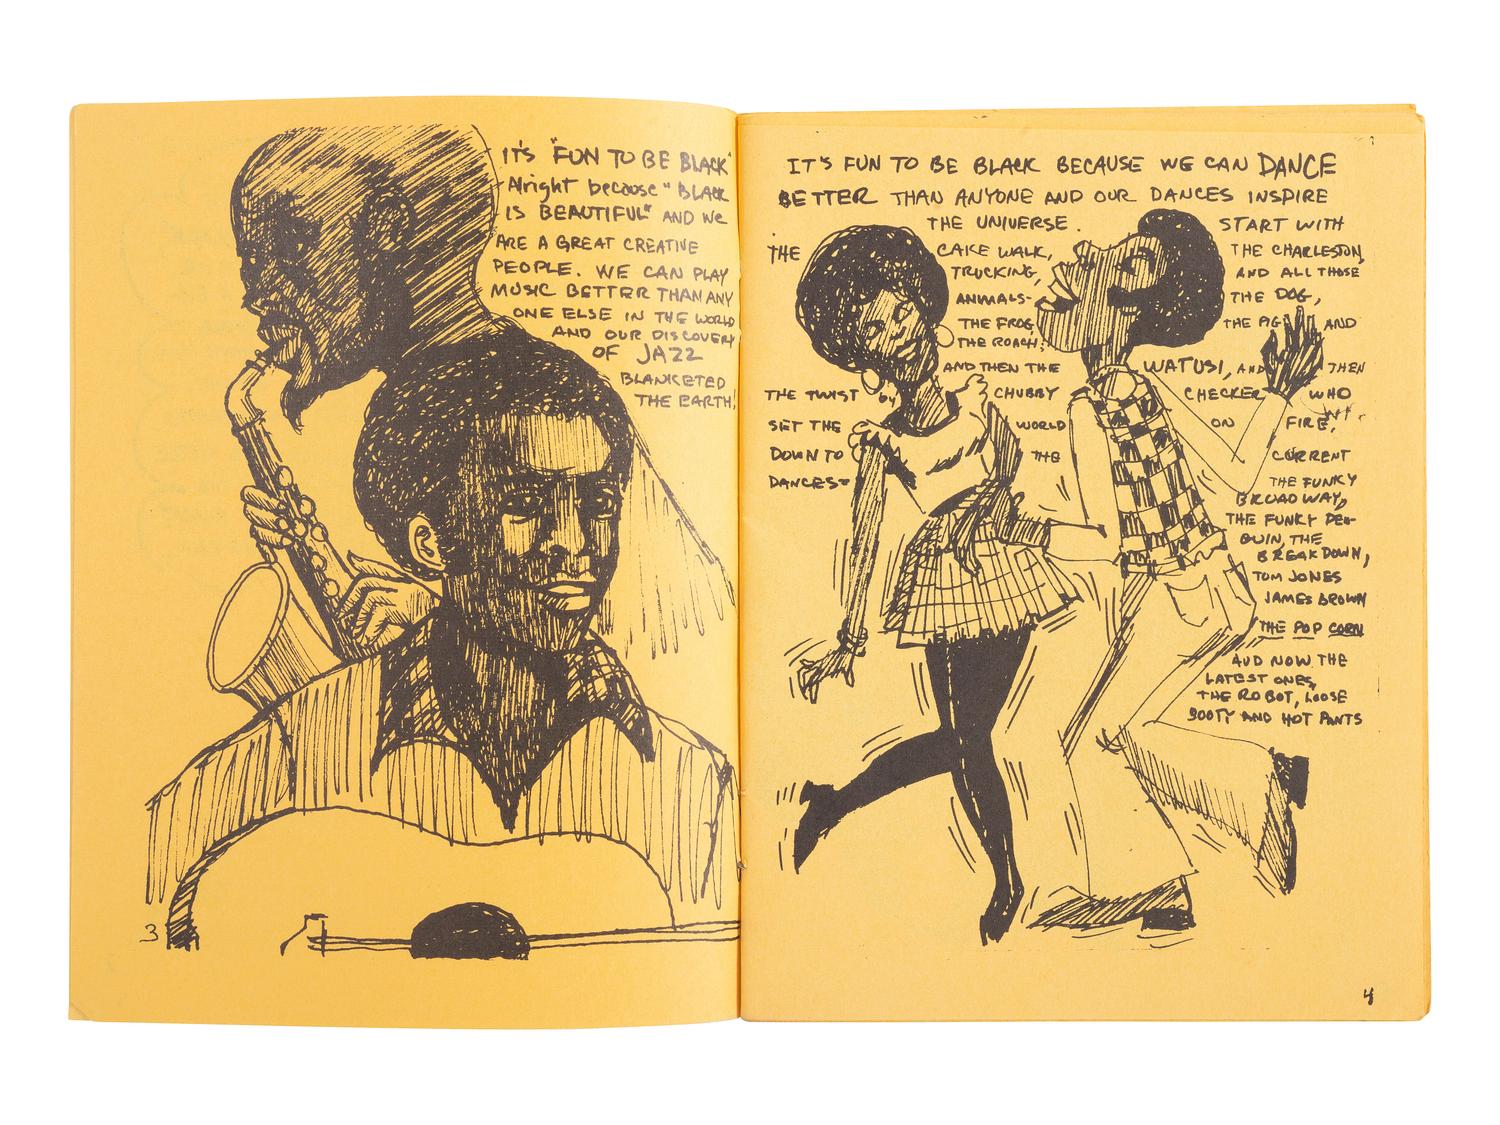 IT'S "FUN TO BE BLACK"
Alright because "BLACK
IS BEAUTIFUL" AND WE
ARE A GREAT CREATIVE
PEOPLE. WE CAN PLAY
MUSIC BETTER THAN ANY
ONE ELSE IN THE WORLD
AND OUR DISCOVERY
OF JAZZ
BLANKETED
THE EARTH!
3
IT'S FUN TO BE BLACK BECAUSE WE CAN DANCE
BETTER THAN ANYONE AND OUR DANCES INSPIRE
THE UNIVERSE. START WITH
THE CAKE WALK, THE CHARLESTON,
TRUCKING, AND ALL THOSE
ANIMALS- THE DOG,
THE FROG, THE PIG AND
THE ROACH;
AND THEN THE WATUSI, AND THEN
THE TWIST by CHUBBY CHECKER WHO
SET THE WORLD ON FIRE,
DOWN TO THE CURRENT
DANCES= THE FUNKY
BROADWAY,
THE FUNKY PEN-
QUIN, THE
BREAKDOWN,
TOM JONES
JAMES BROWN
THE POP CORN
AND NOW THE
LATEST ONES,
THE ROBOT, LOOSE
BOOTY AND HOT PANTS
4